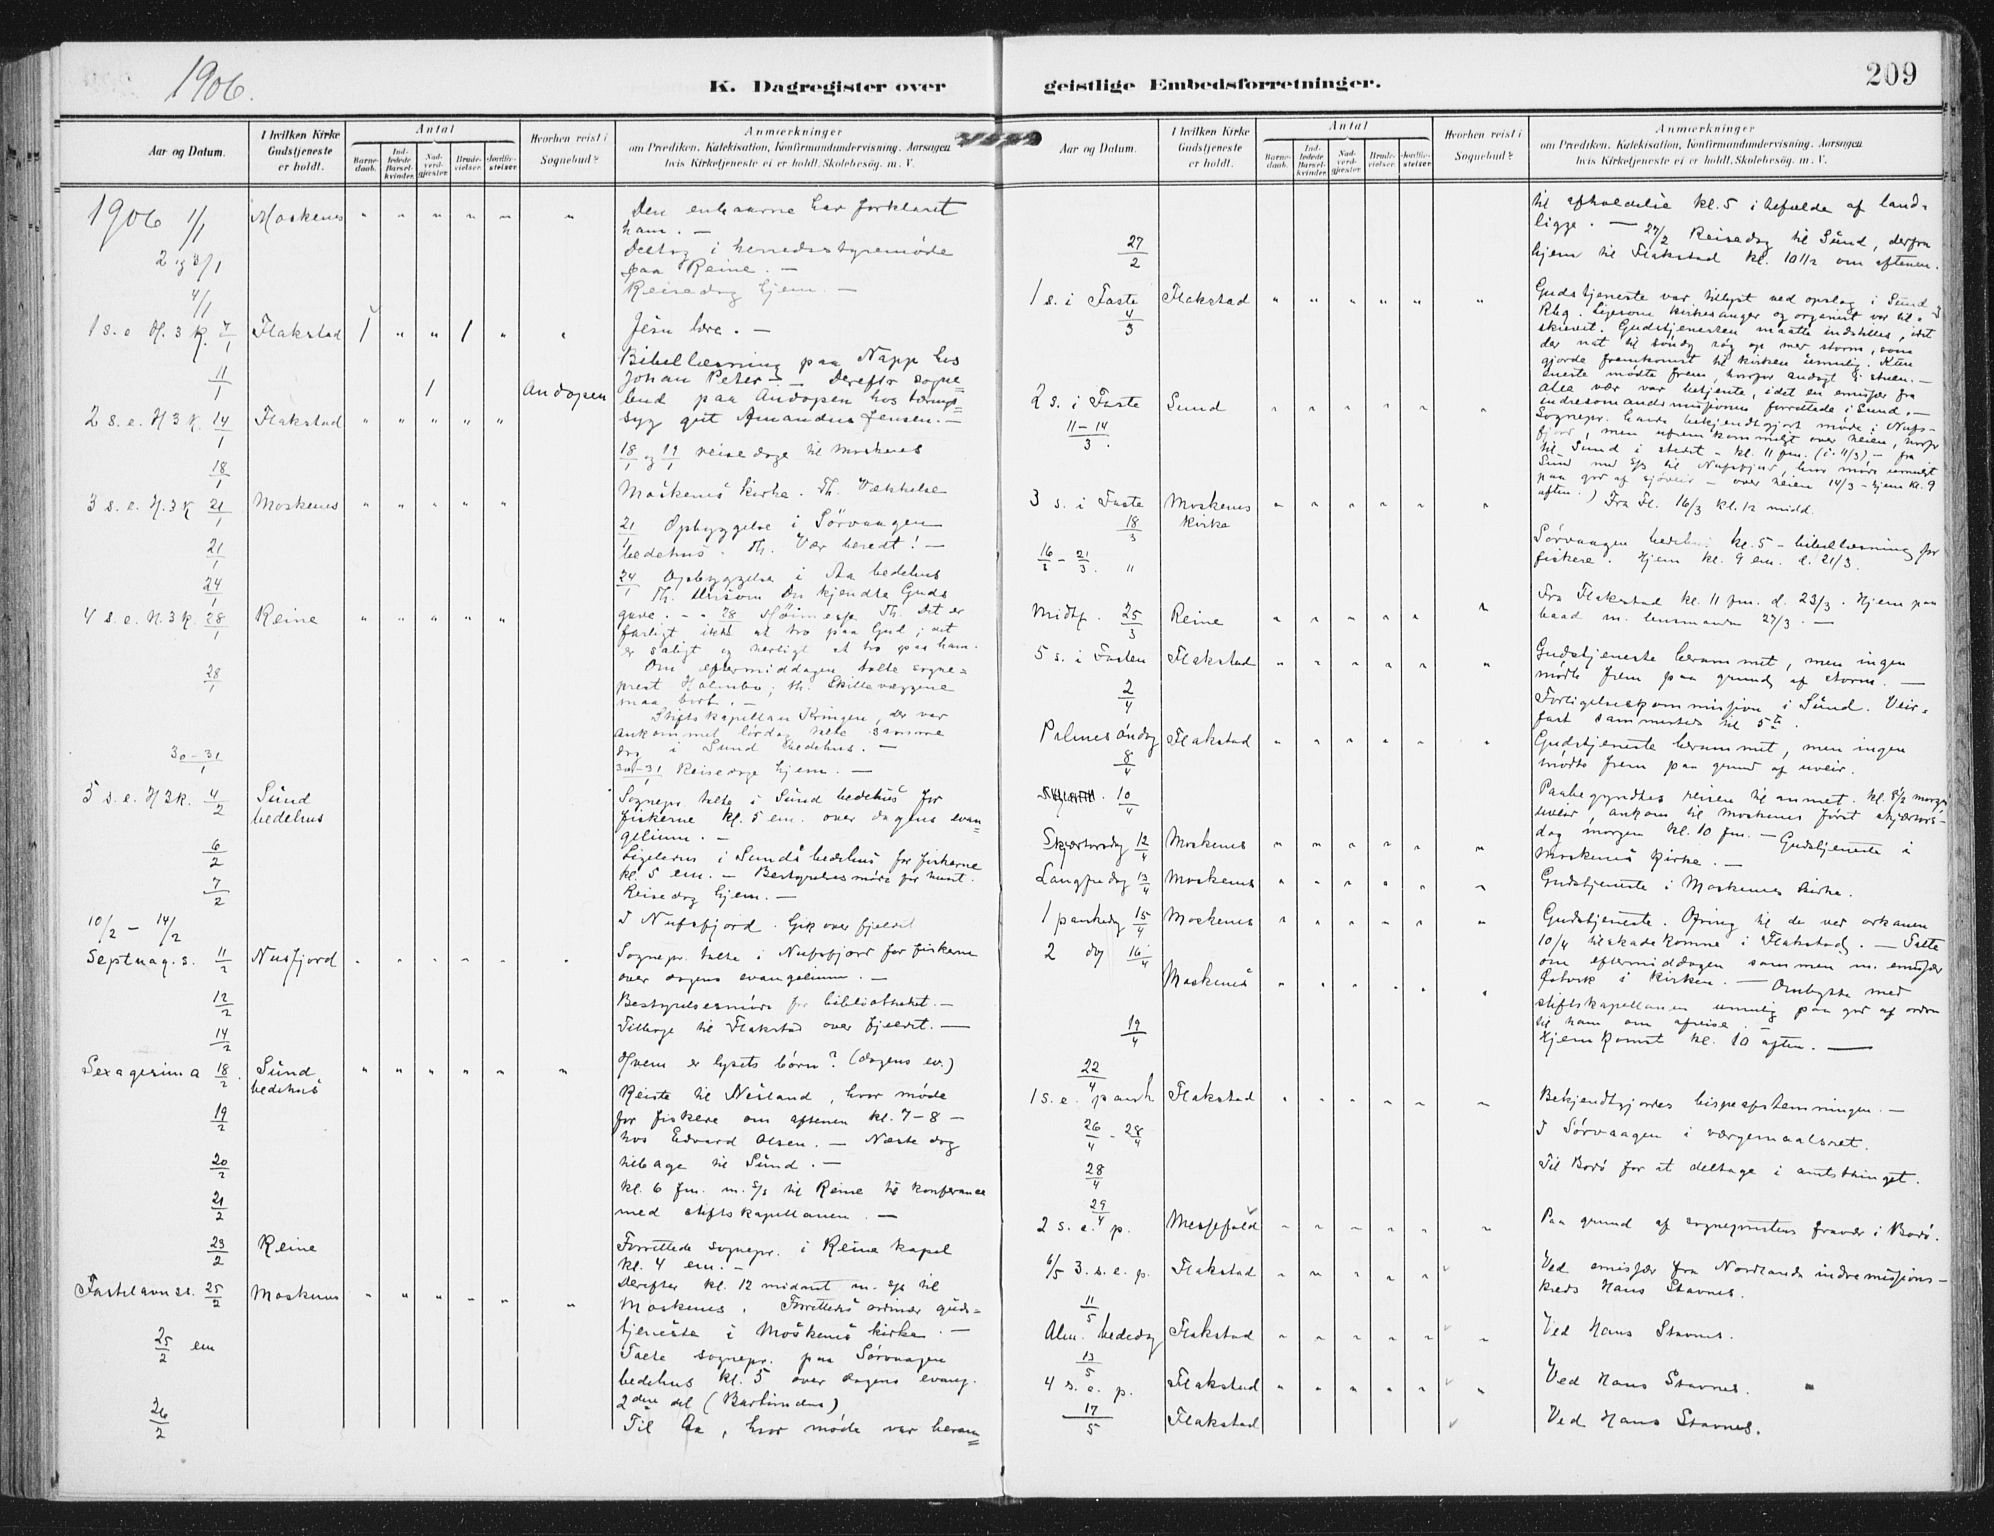 1906.
K. Dagregister over
geistlige Embedsforretninger.
209
Aar og Datum.
I hvilken Kirke
Gudstjeneste
er holdt.
Antal
Barne-
daab.
Ind-
ledede
Barsel-
kvinder.
Nad-
verd-
gjæster.
Brude-
vielser.
Jordfæ-
stelser.
Hvorhen reist i
Sognebud?
Anmærkninger
om Prædiken, Katekisation, Konfirmandundervisning, Aarsagen
hvis Kirketjeneste ei er holdt, Skolebesøg, m. V.
1906 1/1 Moskenes " " " " " " Den enbaarne har forklaret
ham. —
2 og 3/1 Deltog i herredsstyremøde
paa Reine. —
4/1 Reisedag hjem. —
1 s. e. H. 3 K. 7/1 Flakstad 1 " " 1 " " Jesu lære. —
11/1 1 Andopen Bibellæsning paa Napp hos
Johan Peter — Derefter sogne=
bud paa Andopen hos tærings=
syg gut Amandus Jensen. —
2 s. e. H 3 K. 14/1 Flakstad " " " " "
18/1 18/1 og 19/1 reisedage til Moskenes
3 s. e. H. 3 K 21/1 Moskenes " " " " " Moskenes kirke. Th. Vækkelse
21/1 21/1 Opbyggelse i Sørvaagen
bedehus. Th. Vær beredt! —
24/1 24/1 Opbyggelse i Aa bedehus
Th. Dersom du kjendte Guds
4 s. e. H. 3 K. 28/1 Reine " " " " " gave. — 28 Høimesse Th. Det er
farligt ikke at tro paa Gud; det
er saligt og herligt at tro paa ham.
28/1 Om eftermiddagen talte sogne=
prest Holmbo; th. Skillevæggene
maa bort. —
Stiftskapellan Kringen, der var
ankommet lørdag talte samme
dag i Sund bedehus. —
30–31/1 30–31/1 Reisedage hjem. —
5 s. e. H 3 K. 4/2 Sund
bedehus
Sognepr. talte i Sund bedehus for
fiskerne kl. 5 em. over dagens evan=
gelium. —
6/2 Ligeledes i Sunds bedehus for fiskerne
kl. 5 em. — Bestyrelsesmøde for
7/2 Reisedag hjem. —
10/2 – 14/2 I Nufsfjord. Gik over fjeldet
Septuag. s. 11/2 Nusfjord " " " " " " Sognepr. talte i Nufsfjord for fiskerne
over dagens evangelium. —
12/2 Bestyrelsesmøde for bibliotheket. —
14/2 Tilbage til Flakstad over fjeldet. —
Sexagesima 18/2. Sund
bedehus " " " " " " Hvem er lysets børn? (dagens ev.)
19/2 Reiste til Nesland, hvor møde
for fiskere om aftenen kl. 7–8 —
hos Edvard Olsen. — Næste dag
20/2 tilbage til Sund. —
21/2 kl. 6 fm. m. s/s til Reine til konferance
med stiftskapellanen. —
23/2 Reine Forrettede sognepr. i Reine kapel
kl. 4 em. —
Fastelavns s. 25/2 Moskenes " " " " " " Derefter kl. 12 midnat m. s/s til
Moskenes. Forrettedes ordinær guds=
tjeneste i Moskenes kirke. —
25/2 em Talte sognepr. paa Sørvaagen
bedehus kl. 5 over dagens evang.
2den del (Bartimæus)
26/2 Til Aa, hvor møde var beram=
Aar og Datum.
I hvilken Kirke
Gudstjeneste
er holdt.
Antal
Barne-
daab.
Ind-
ledede
Barsel-
kvinder.
Nad-
verd-
gjæster.
Brude-
vielser.
Jordfæ-
stelser.
Hvorhen reist i
Sognebud?
Anmærkninger
om Prædiken, Katekisation, Konfirmandundervisning, Aarsagen
hvis Kirketjeneste ei er holdt, Skolebesøg, m. V.
til afholdelse kl. 5 i tilfælde af land=
ligge. — 27/2 Reisedag til Sund, derfra
27/2 hjem til Flakstad kl. 10 1/2 om aftenen.
1 s. i Faste 4/3 Flakstad " " " " " " Gudstjeneste var tillyst ved opslag i Sund
Rbg. Ligesom kirkesanger og organist var til=
skrevet. Gudstjenesten maatte indstilles, idet
der nat til søndag røg op mer storm, som
gjorde fremkomst til kirken umulig. Kun
eneste mødte frem, hvorfor andagt i stuen. —
2 s. i Faste Sund " " " " " " Alle vær var betjente, idet en emissær fra
indremandsmissionen forrettede i Sund. —
11–14/3. Sognepr. havde bekjendtgjort møde i Nufs-
fjord, men ufremkommeligt over heien, hvorfor
til Sund i stedet — kl. 11 fm. (i 11/3) — fra
Sund med s/s til Nufsfjord, hvor møde umuligt
paa grd af sjøveir — over heien 14/3 – hjem kl. 9
aften.) Fra Fl. 16/3 kl. 12 midd.
3 s. i Faste 18/3 Moskenes
kirke " " " " " "
16/3 – 21/3. " Sørvaagen bedehus kl. 5 – bibellæsning for
fiskere. Hjem kl. 9 em. d. 21/3.
Midtf. 25/3 Reine " " " " " " Fra Flakstad kl. 11 fm. d. 23/3. Hjem paa
baad m. lensmanden 27/3. —
5 s. i Fasten Flakstad " " " " " " Gudstjeneste berammet, men ingen
mødte frem paa grund af storm. —
2/4 Forligelseskommission i Sund. Veir-
fast sammesteds til 5te.
Palmesøndag 8/4 Flakstad " " " " " " Gudstjeneste berammet, men ingen
mødte frem paa grund af uveir.
10/4 Paabegyndtes reisen til annex. kl. 8 1/2 morg.
uveir, ankom til Moskenes først skjærtors-
Skjærtorsdag 12/4 Moskenes " " " " " " dag morgen kl. 10 fm. — Gudstjeneste i
Moskenes Kirke. —
Langfredag 13/4 Moskenes " " " " " " Gudstjeneste i Moskenes kirke.
1 paaskedag 15/4 Moskenes " " " " " " Gudstjeneste. Ofring til de ved orkanen
2 dag 16/4 Moskenes " " " " " " 10/4 tilskadekomne i Flakstad. — Talte
om eftermiddagen sammen m. emissær
Østvik i kirken. — Ombytte med
stiftskapellanen umulig paa grd af ordre
til ham om afreise. —
19/4 Hjemkomst kl. 10 aften. —
22/4
1 s. e. paask Flakstad " " " " " " Bekjendtgjordes bispeafstemningen. —
26/4 - 28/4 I Sørvaagen i værgemaalsret.
28/4 Til Bodø for at deltage i amtsthinget.
29/4
2 s. e. p. Messefald " " " " " " Paa grund af sogneprestens fravær i Bodø.
6/5 3. s. e. p. Flakstad " " " " " Ved emissær fra Nordlands indremissions-
kreds Hans Stavnes.
11/5
Alm. bededag Flakstad " " " " " " Ved Hans Stavnes.
13/5
4 s. e. p. Flakstad " " " " " " Ved Hans Stavnes.
17/5 Flakstad " " " " " Ved Hans Stavnes.